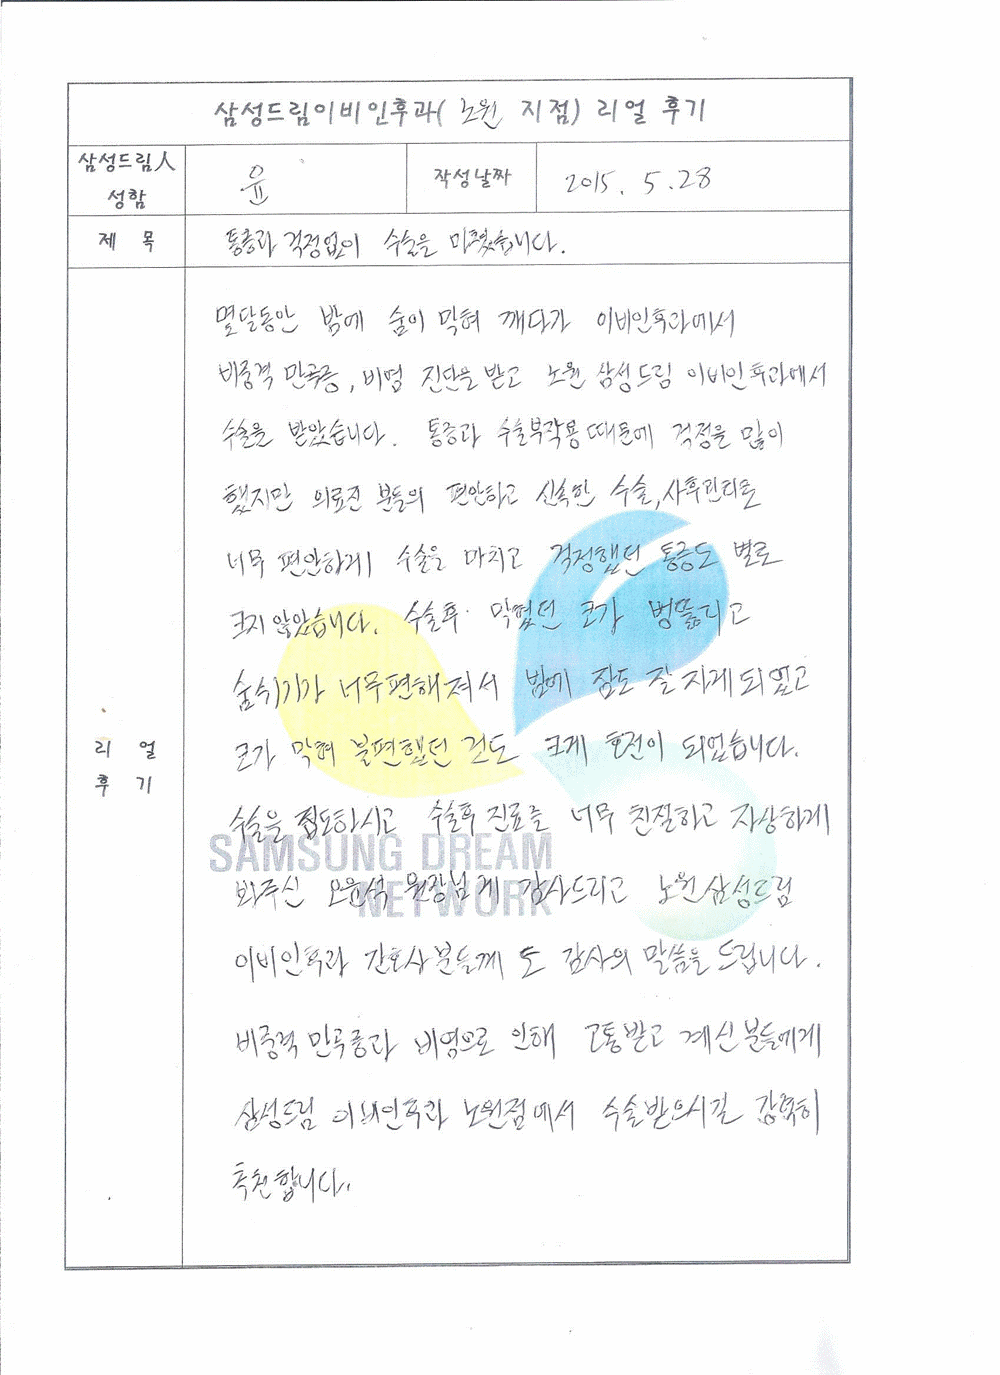 삼성드림이비인후과( 노원 지점) 리얼 후기
삼성드림人 성함
윤
작성날짜
2015. 5.28
제 목
통증과 걱정없이 수술을 마쳤습니다.
리 얼 후 기
몇달동안 밤에 숨이 막혀 깨다가 이비인후과에서
비중격 만곡증, 비염 진단을 받고 노원 삼성드림 이비인후과에서
수술을 받았습니다. 통증과 수술부작용 때문에 걱정을 많이
했지만 의료진 분들의 편안하고 신속한 수술,사후관리로
너무 편안하게 수술을 마치고 걱정했던 통증도 별로
크지 않았습니다. 수술후 막혔던 코가 뻥뚫리고
숨쉬기가 너무편해져서 밤에 잠도 잘 자게 되었고
코가 막혀 불편했던 건도 크게 호전이 되었습니다.
수술을 집도하시고 수술후 진료를 너무 친절하고 자상하게
봐주신 오윤석 원장님께 감사드리고 노원삼성드림
이비인후과 간호사분들께 도 감사의 말씀을 드립니다.
비중격 만곡증과 비염으로 인해 고통받고 계신분들에게
삼성드림 이비인후과 노원점에서 수술받으시길 강력히
추천합니다.
SAMSUNG DREAM
NETWORK